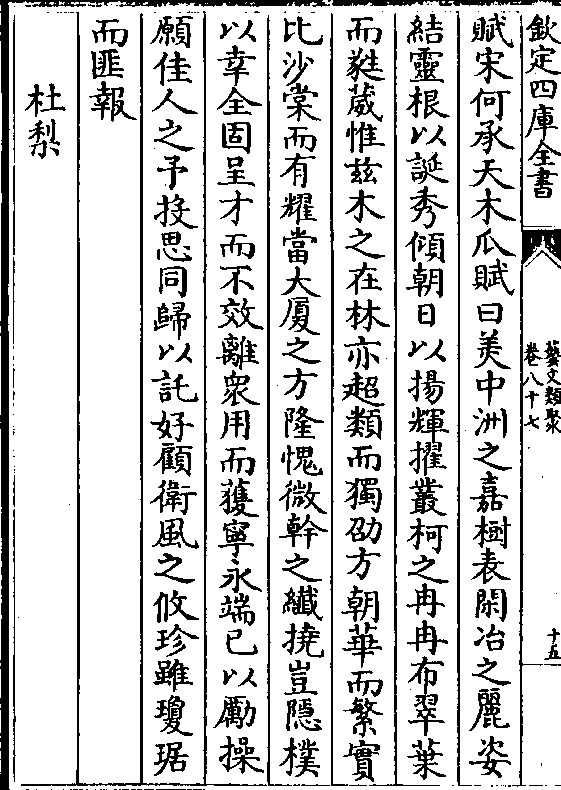 欽定四庫全書
藝文類聚
卷八十七
十五
賦宋何承天木瓜賦曰美中洲之嘉樹表閑冶之麗姿
結靈根以誕秀傾朝日以揚輝擢叢柯之冉冉布翠葉
而蕤葳惟兹木之在林亦超類而獨劭方朝華而繁實
比沙棠而有耀當大厦之方隆愧微幹之纖撓豈隱樸
以幸全固呈才而不效離衆用而獲寧永端已以勵操
願佳人之予投思同歸以託好顧衛風之攸珍雖瓊琚
而匪報
杜梨